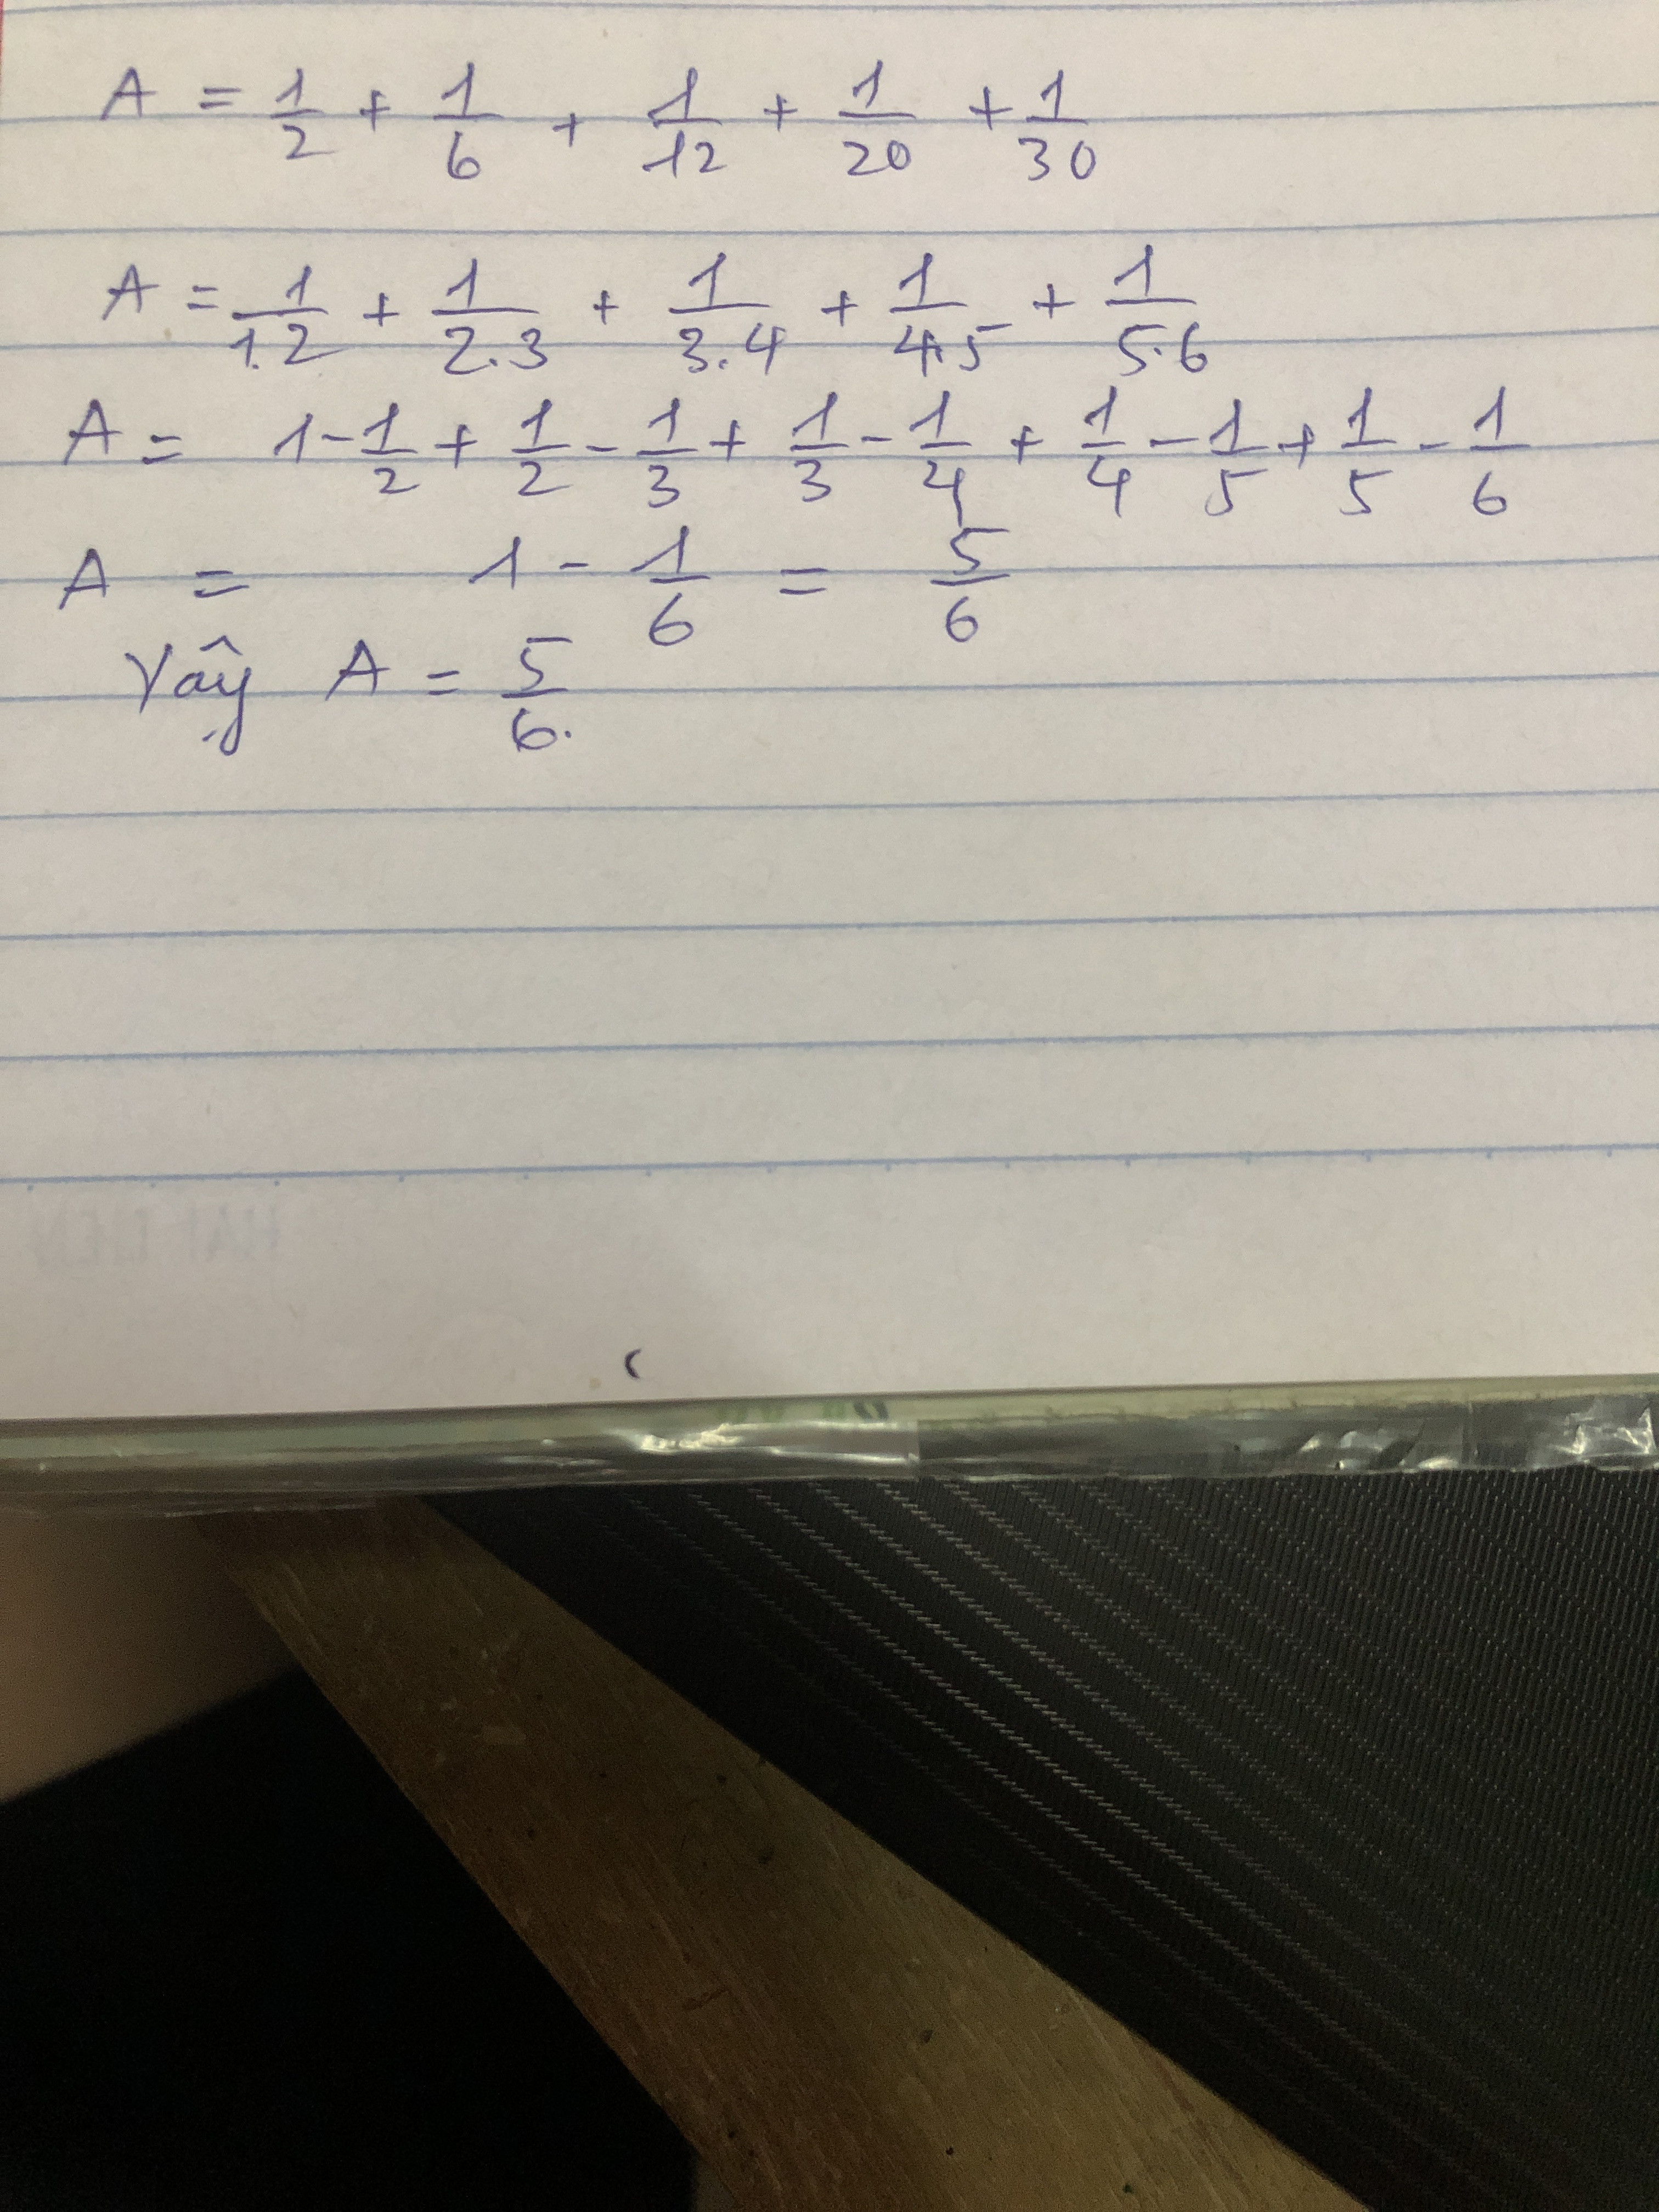 A = 1/2 + 1/6 + 1/12 + 1/20 + 1/30
A = 1/1.2 + 1/2.3 + 1/3.4 + 1/4.5 + 1/5.6
A = 1 - 1/2 + 1/2 - 1/3 + 1/3 - 1/4 + 1/4 - 1/5 + 1/5 - 1/6
A = 1 - 1/6 = 5/6
Vậy A = 5/6.
HẢI TIẾN